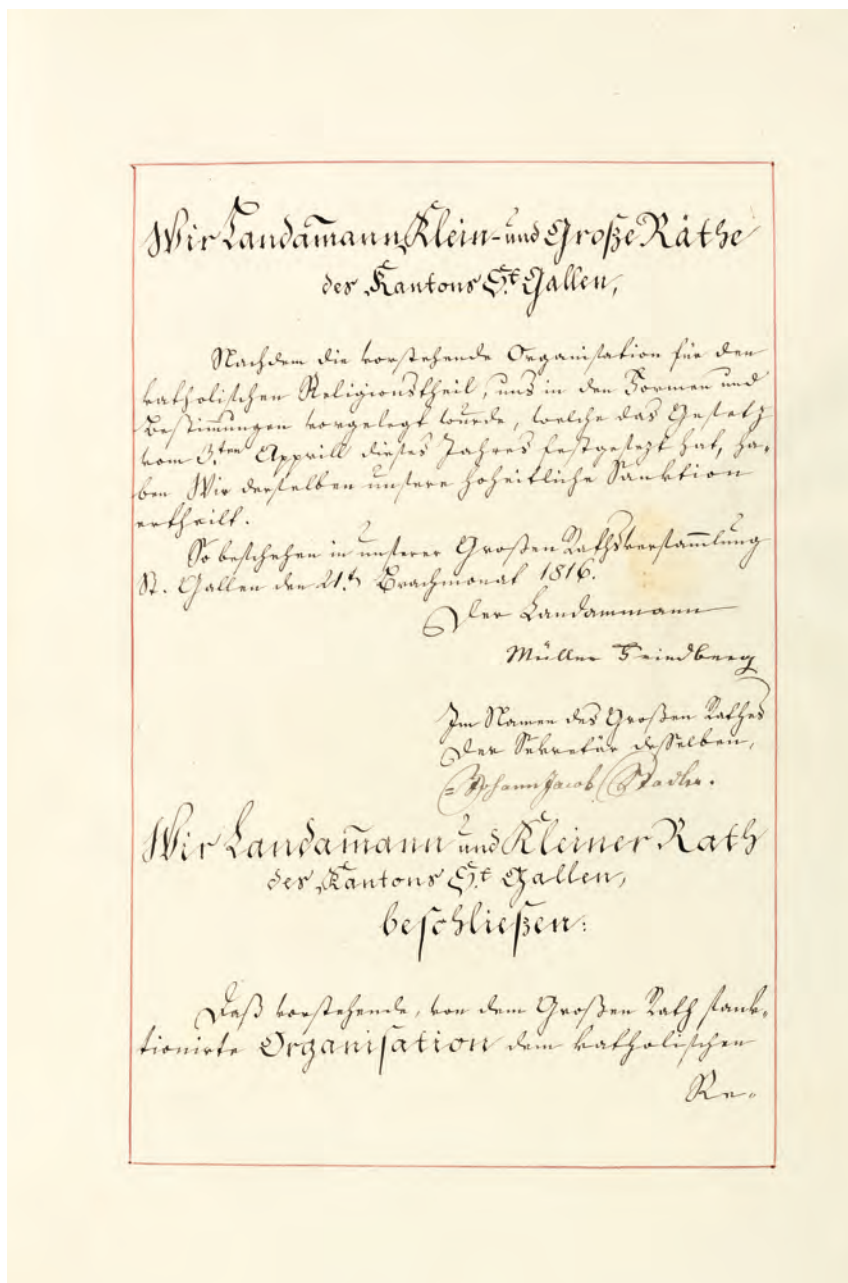 Wir Landam̄ann, Klein- und Große Räthe
des Kantons St. Gallen,
Nachdem die vorstehende Organisation für den
katholischen Religionstheil, uns in den Formen und
Bestim̄ungen vorgelegt wurde, welche das Gesetz
vom 3.ten Aprill dieses Jahres festgesezt hat, ha-
ben Wir derselben unsere hoheitliche Sanktion
ertheilt.
So beschehen in unserer Großen Rathsversam̄lung
St. Gallen den 21.t Brachmonat 1816.
Der Landammann
Müller Friedberg
Im Namen des Großen Rathes
Der Sekretär desselben,
Johann Jacob Stadler.
Wir Landam̄ann und Kleiner Rath
des Kantons St. Gallen,
beschließen:
Daß vorstehende, von dem Großen Rath sank-
tionirte Organisation dem katholischen
Re-